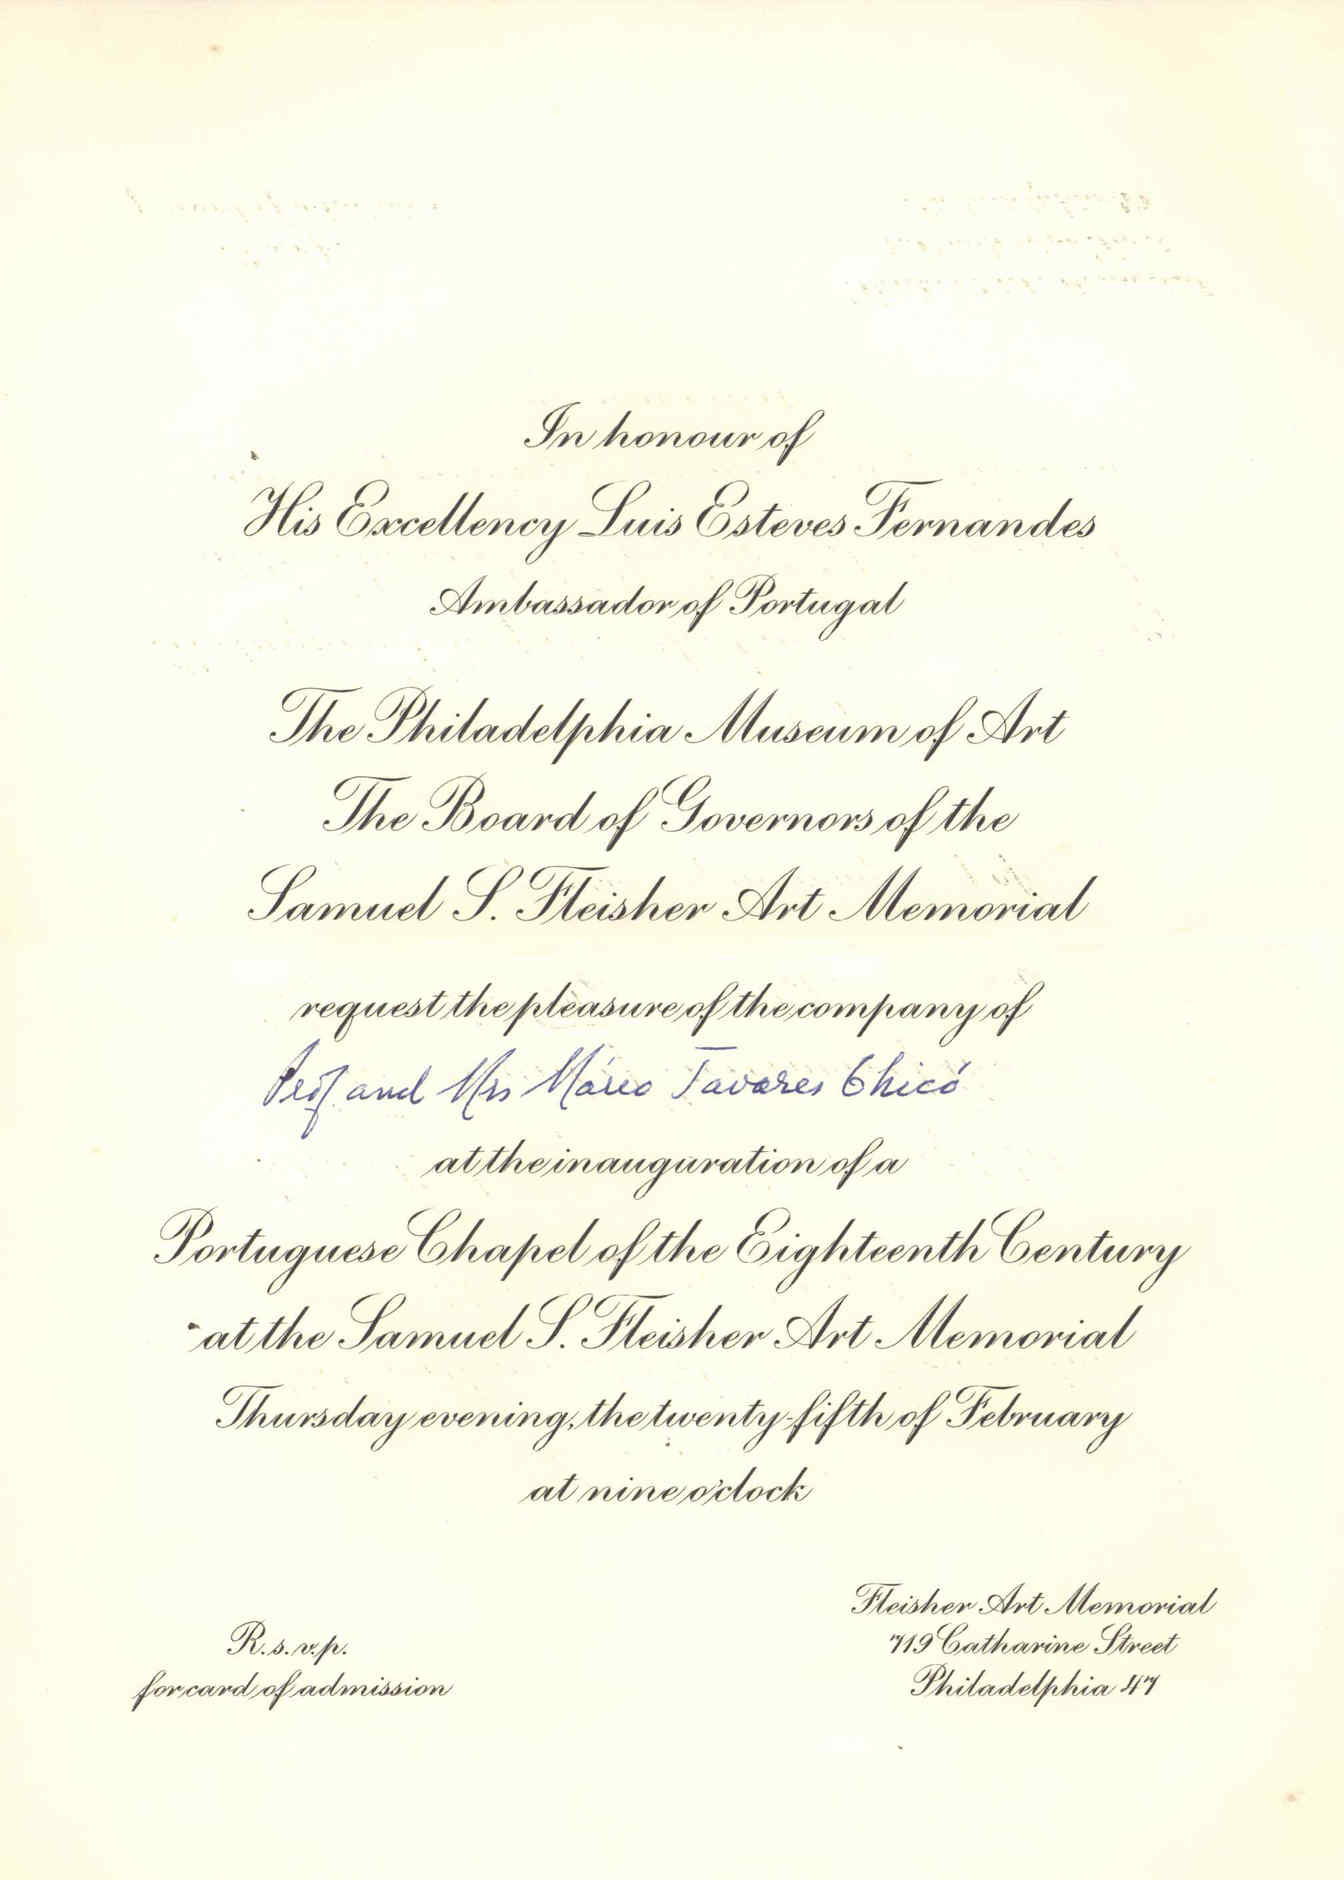 In honour of
His Excellency Luis Esteves Fernandes
Ambassador of Portugal
The Philadelphia Museum of Art
The Board of Governors of the
Samuel S. Fleisher Art Memorial
request the pleasure of the company of
Prof and Mrs Mário Tavares Chicó
at the inauguration of a
Portuguese Chapel of the Eighteenth Century
at the Samuel S. Fleisher Art Memorial
Thursday evening, the twenty-fifth of February
at nine o'clock
R.s.v.p.
for card of admission
Fleisher Art Memorial
719 Catharine Street
Philadelphia 47